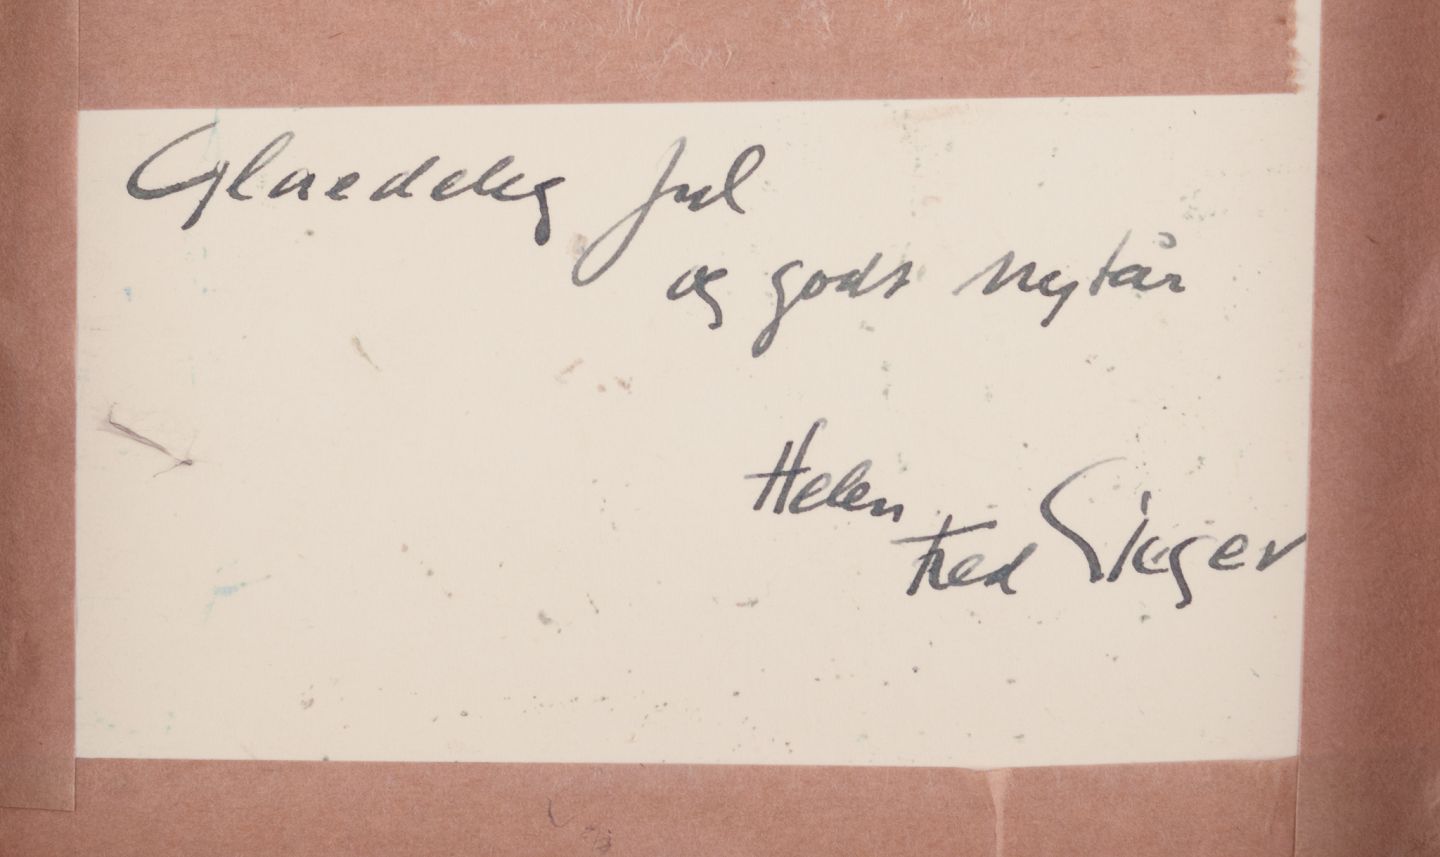 Glaedelig Jul
og godt nytår
Helen
Fred